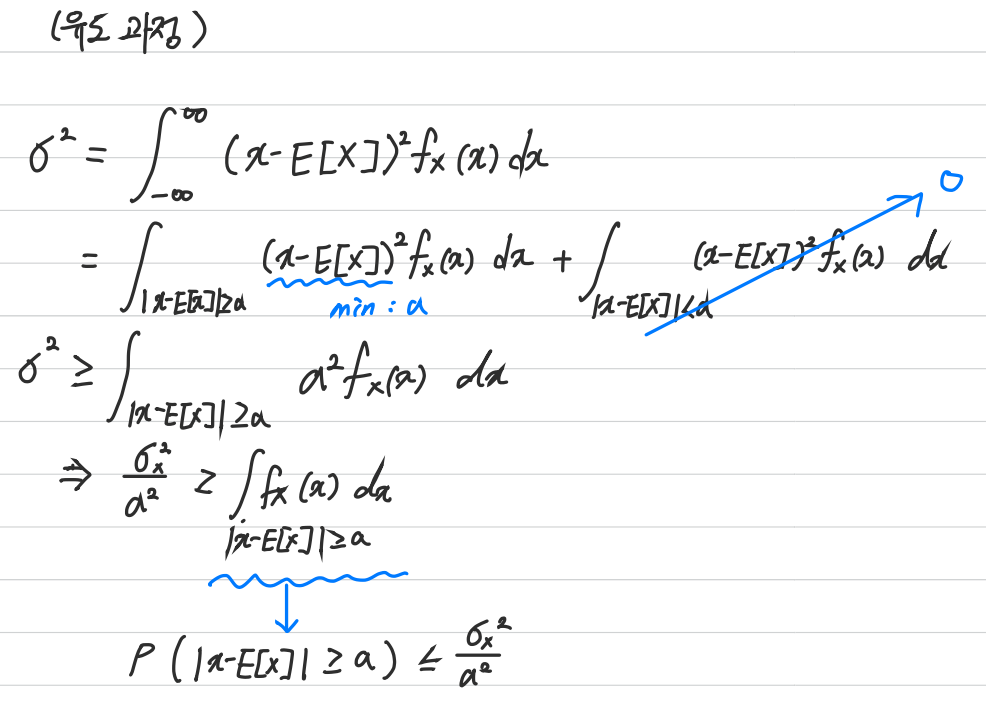 (유도 과정)
σ² = ∫_{-∞}^{∞} (x-E[X])² f_x(x) dx
= ∫_{|x-E[x]|≥a} (x-E[x])² f_x(x) dx + ∫_{|x-E[x]|<a} (x-E[x])² f_x(x) dx → 0
min : a
σ² ≥ ∫_{|x-E[x]|≥a} a² f_x(x) dx
⇒ σ_x²/a² ≥ ∫_{|x-E[x]|≥a} f_x(x) dx
↓
P(|x-E[x]| ≥ a) ≤ σ_x²/a²